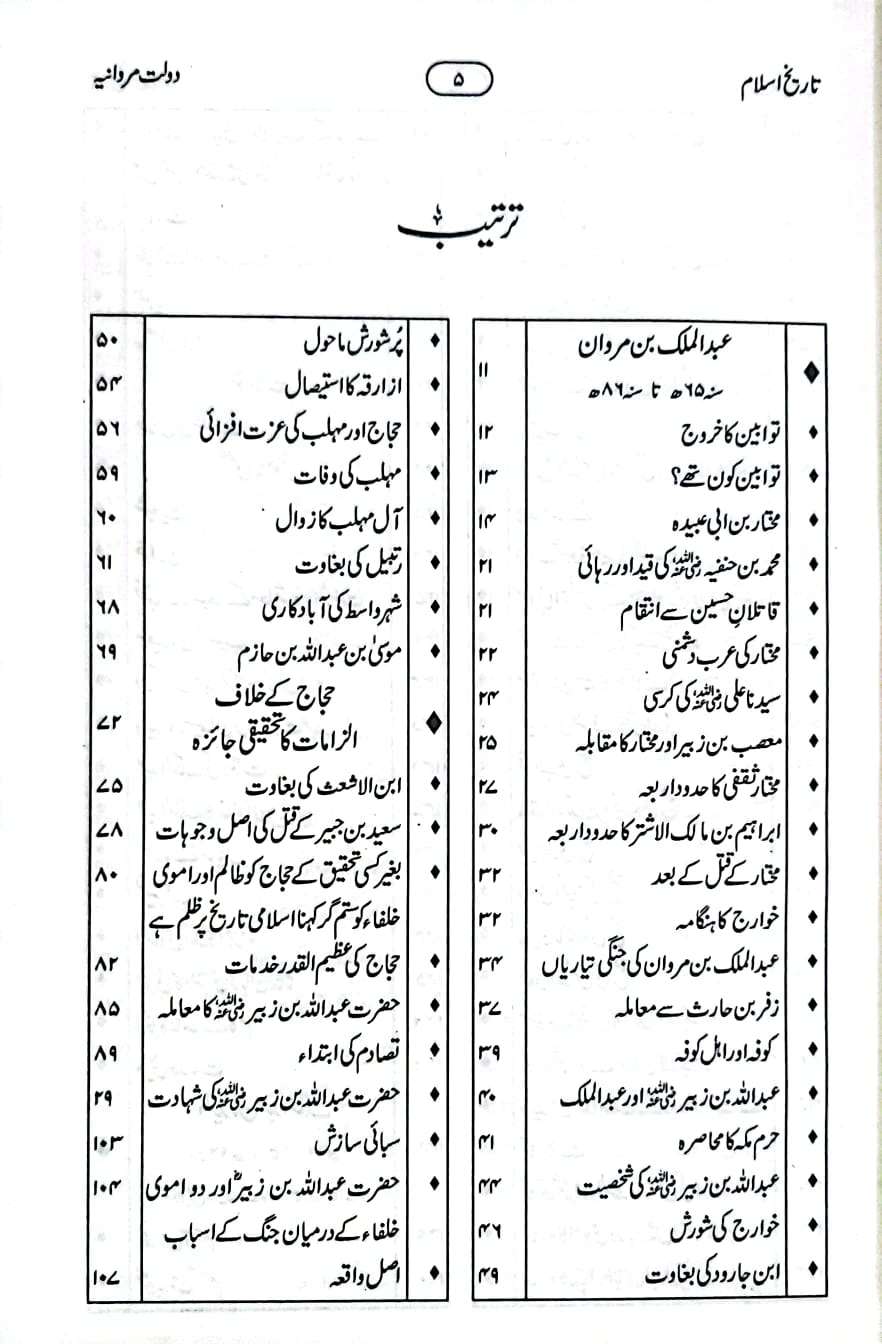 تاریخ اسلام ۵ دولت مروانیہ
ترتیب
عبدالملک بن مروان
سنہ ۶۵ھ تا سنہ ۸۶ھ ۱۱
توابین کا خروج ۱۲
توابین کون تھے؟ ۱۳
مختار بن ابی عبیدہ ۱۴
محمد بن حنفیہ رضی اللہ عنہ کی قید اور رہائی ۲۱
قاتلانِ حسین سے انتقام ۲۱
مختار کی عرب دشمنی ۲۲
سیدنا علی رضی اللہ عنہ کی کرسی ۲۴
معصب بن زبیر اور مختار کا مقابلہ ۲۵
مختار ثقفی کا حدود اربعہ ۲۷
ابراہیم بن مالک الاشتر کا حدود اربعہ ۳۰
مختار کے قتل کے بعد ۳۲
خوارج کا ہنگامہ ۳۲
عبدالملک بن مروان کی جنگی تیاریاں ۳۴
زفر بن حارث سے معاملہ ۳۷
کوفہ اور اہل کوفہ ۳۹
عبداللہ بن زبیر رضی اللہ عنہ اور عبدالملک ۴۰
حرم مکہ کا محاصرہ ۴۱
عبداللہ بن زبیر رضی اللہ عنہ کی شخصیت ۴۴
خوارج کی شورش ۴۶
ابن جارود کی بغاوت ۴۹
پُر شورش ماحول ۵۰
ازارقہ کا استیصال ۵۴
حجاج اور مہلب کی عزت افزائی ۵۶
مہلب کی وفات ۵۹
آل مہلب کا زوال ۶۰
رتبیل کی بغاوت ۶۱
شہر واسط کی آبادکاری ۶۸
موسیٰ بن عبداللہ بن حازم ۶۹
حجاج کے خلاف
الزامات کا تحقیقی جائزہ ۷۲
ابن الاشعث کی بغاوت ۷۵
سعید بن جبیر کے قتل کی اصل وجوہات ۷۸
بغیر کسی تحقیق کے حجاج کو ظالم اور اموی ۸۰
خلفاء کو ستم گر کہنا اسلامی تاریخ پر ظلم ہے
حجاج کی عظیم القدر خدمات ۸۲
حضرت عبداللہ بن زبیر رضی اللہ عنہ کا معاملہ ۸۵
تصادم کی ابتداء ۸۹
حضرت عبداللہ بن زبیر رضی اللہ عنہ کی شہادت ۲۹
سبائی سازش ۱۰۳
حضرت عبداللہ بن زبیرؓ اور دو اموی ۱۰۴
خلفاء کے درمیان جنگ کے اسباب
اصل واقعہ ۱۰۷